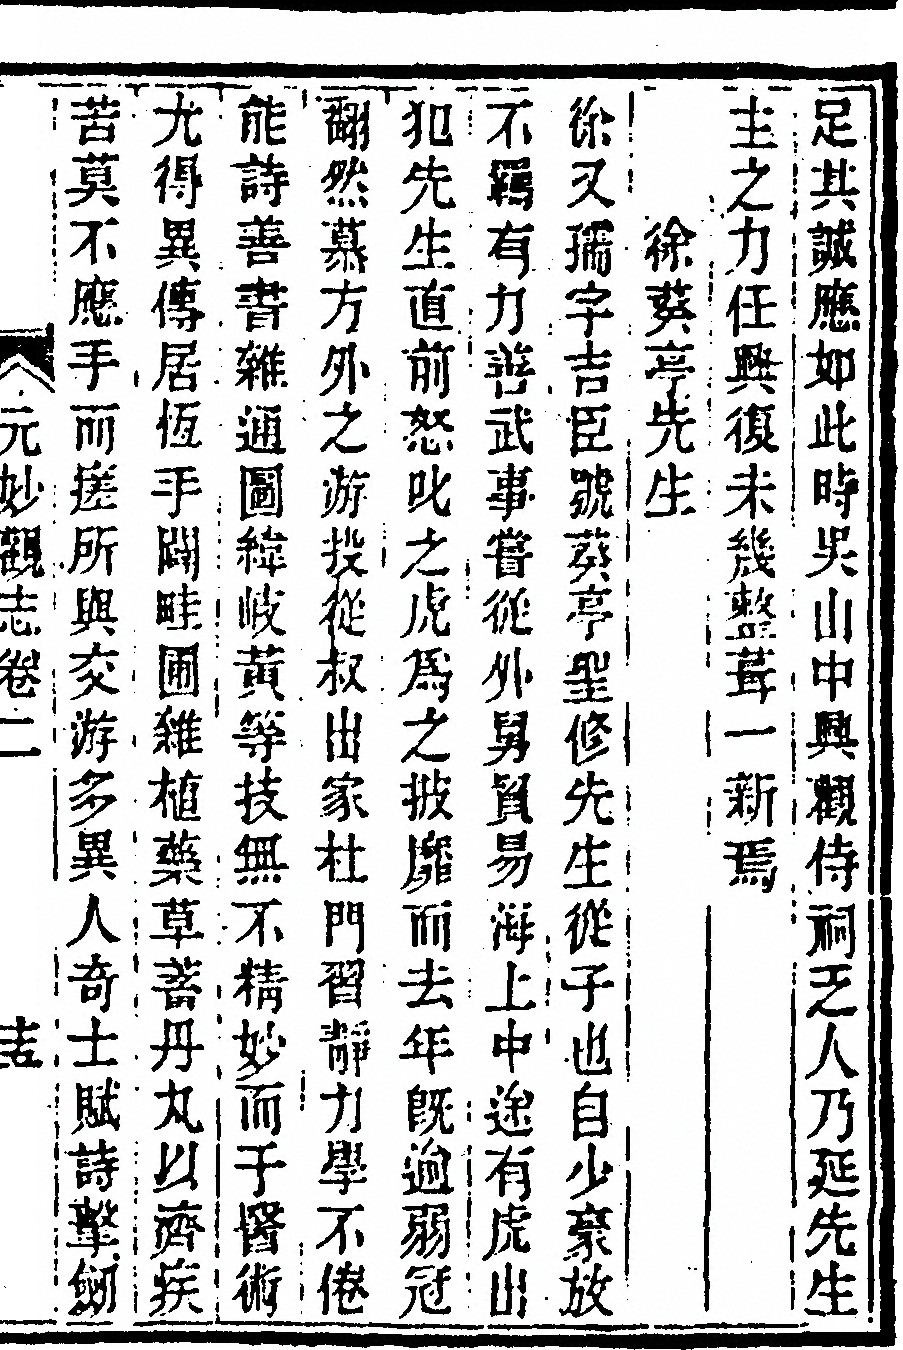 足其誠應如此時吳山中興觀侍祠乏人乃延先生
主之力任興復未幾整葺一新焉
徐葵亭先生
徐又孺字吉臣號葵亭聖修先生從子也自少豪放
不羈有力善武事嘗從外舅貿易海上中途有虎出
犯先生直前怒叱之虎為之披靡而去年既逾弱冠
翻然慕方外之游投從叔出家杜門習靜力學不倦
能詩善書雜通圖緯岐黃等技無不精妙而于醫術
尤得異傳居恆手闢畦圃雜植藥草蓄丹丸以濟疾
苦莫不應手而瘥所與交游多異人奇士賦詩擊劒
元妙觀志卷二